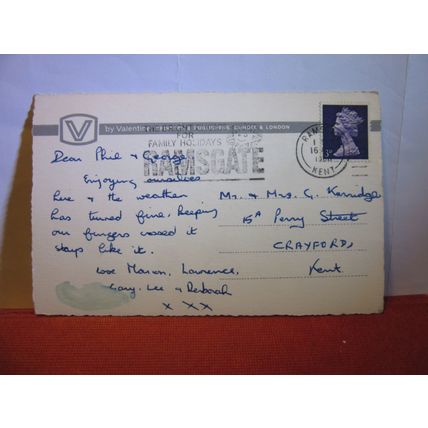 by Valentine DUNDEE & LONDON
FOR
FAMILY HOLIDAYS
RAMSGATE
KENT
Dear Phil & George
Enjoying ourselves
here & the weather
has turned fine, keeping
our fingers crossed it
stays like it.
love Marion, Lawrence,
Gary, Lee & Deborah
x xx
Mr. & Mrs. G. Kerridge
15A Perry Street
CRAYFORD,
Kent.